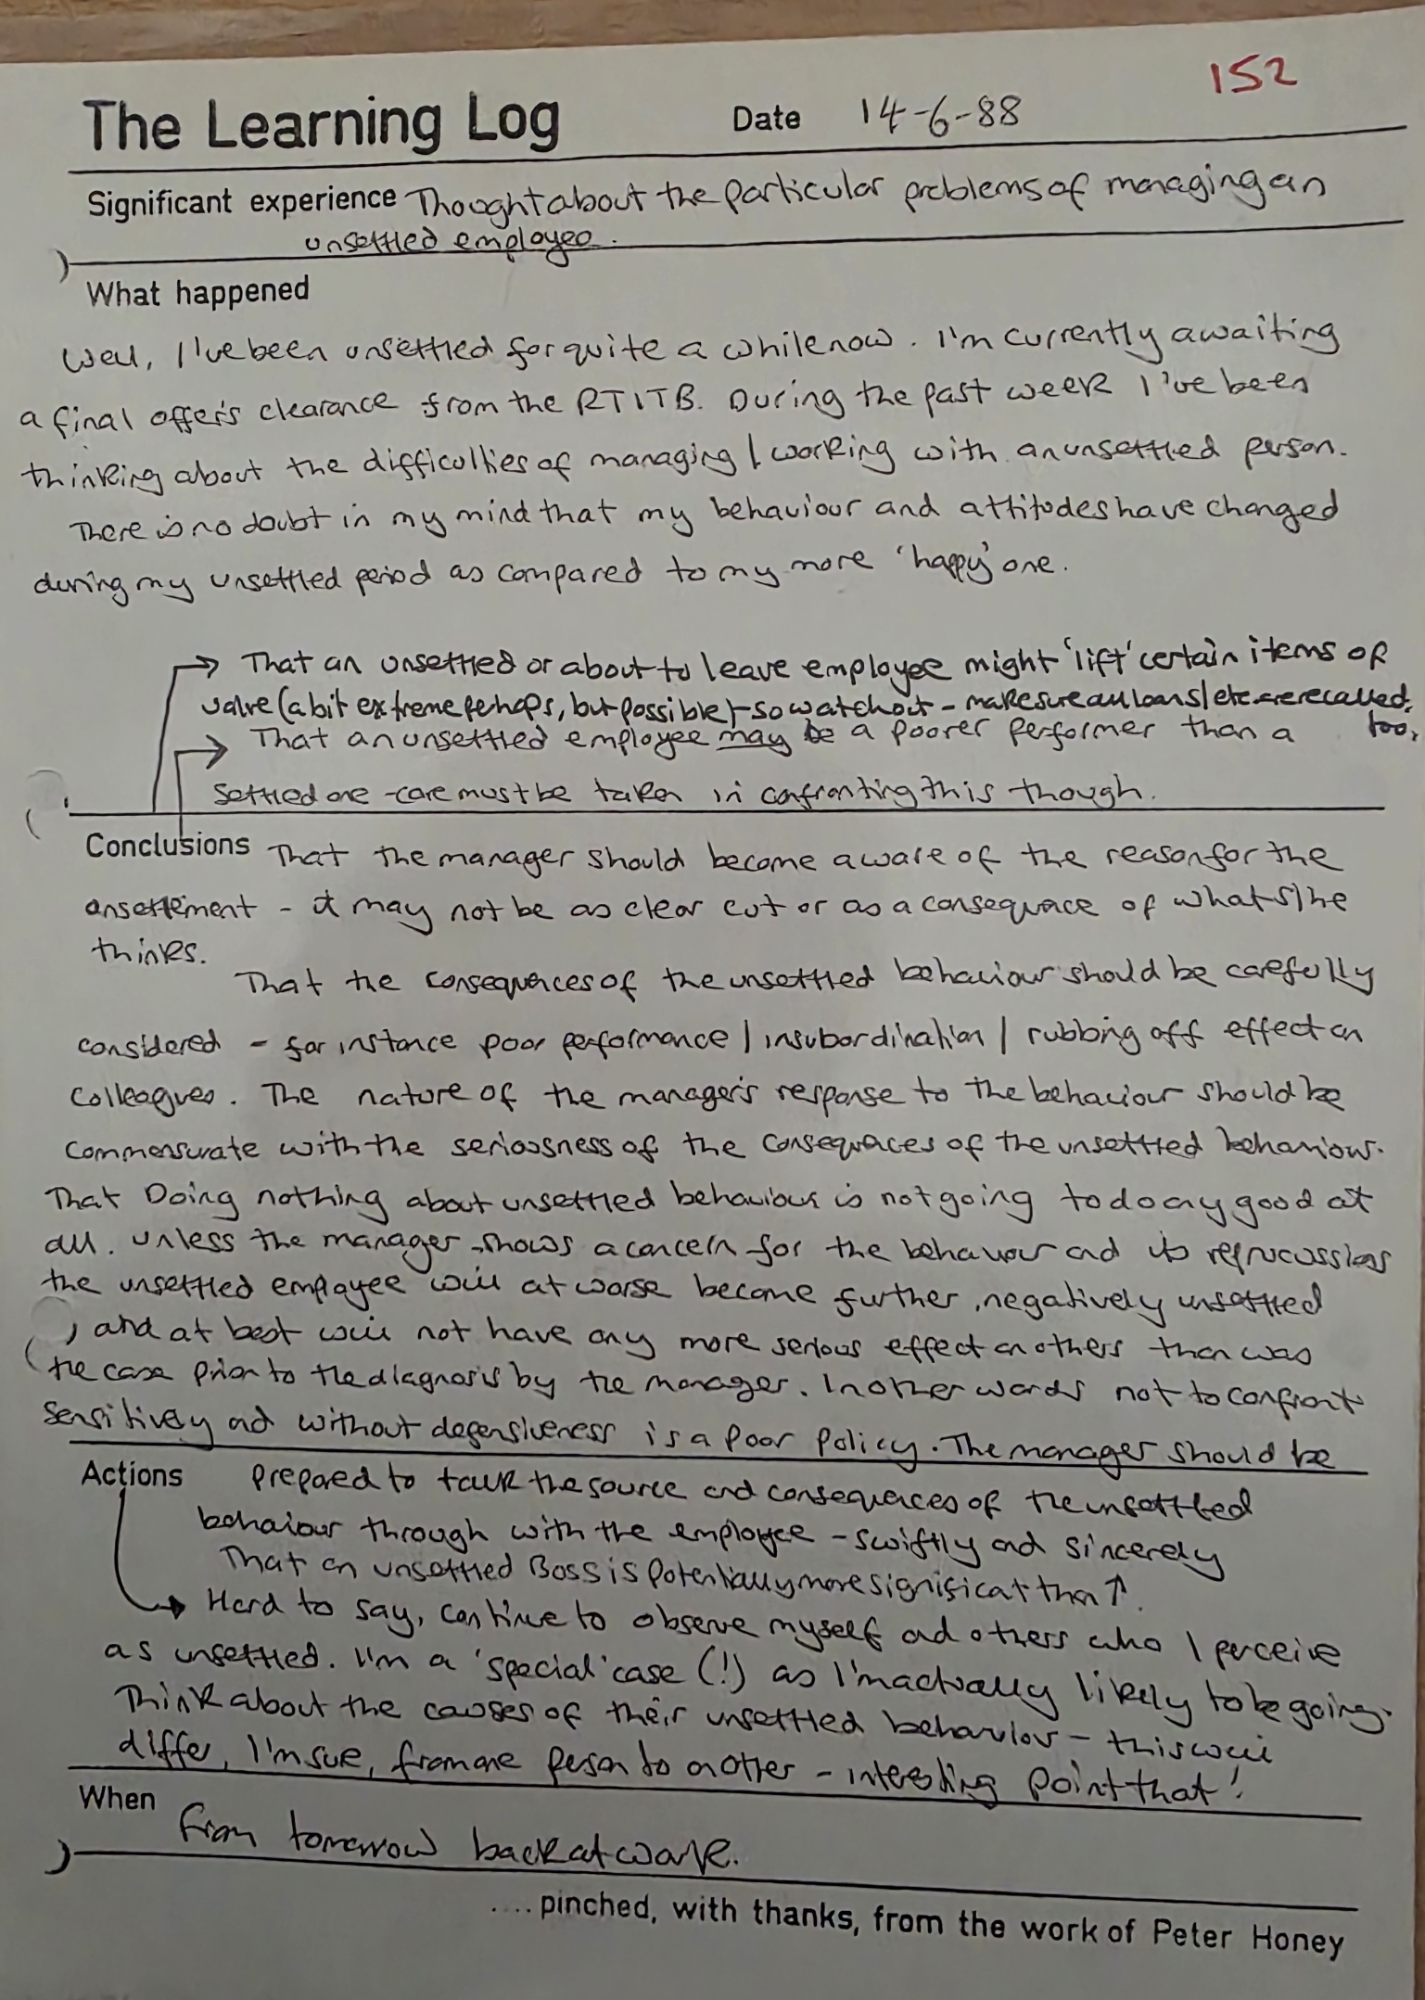 152
The Learning Log Date 14-6-88
Significant experience Thought about the particular problems of managing an
unsettled employee.
What happened
Well, I've been unsettled for quite a while now. I'm currently awaiting
a final offer's clearance from the RTITB. During the past week I've been
thinking about the difficulties of managing / working with an unsettled person.
There is no doubt in my mind that my behaviour and attitudes have changed
during my unsettled period as compared to my more 'happy' one.
→ That an unsettled or about to leave employee might 'lift' certain items of
value (a bit extreme perhaps, but possible) - so watch out - make sure all loans/etc. are recalled,
too.
→ That an unsettled employee may be a poorer performer than a
settled one - care must be taken in confronting this though.
Conclusions That the manager should become aware of the reason for the
unsettlement - it may not be as clear cut or as a consequence of what s/he
thinks.
That the consequences of the unsettled behaviour should be carefully
considered - for instance poor performance / insubordination / rubbing off effect on
colleagues. The nature of the manager's response to the behaviour should be
commensurate with the seriousness of the consequences of the unsettled behaviour.
That Doing nothing about unsettled behaviour is not going to do any good at
all. Unless the manager shows a concern for the behaviour and its reprucussions
the unsettled employee will at worse become further, negatively unsettled
, and at best will not have any more serious effect on others than was
the case prior to the diagnosis by the manager. In other words not to confront
sensitively and without defensiveness is a poor policy. The manager should be
Actions prepared to talk the source and consequences of the unsettled
behaviour through with the employee - swiftly and sincerely
That an unsettled Boss is potentially more significant than ↑.
→ Hard to say, continue to observe myself and others who I perceive
as unsettled. I'm a 'special' case (!) as I'm actually likely to be going.
Think about the causes of their unsettled behaviour - this will
differ, I'm sure, from one person to another - interesting point that!
When From tomorrow back at work.
.... pinched, with thanks, from the work of Peter Honey